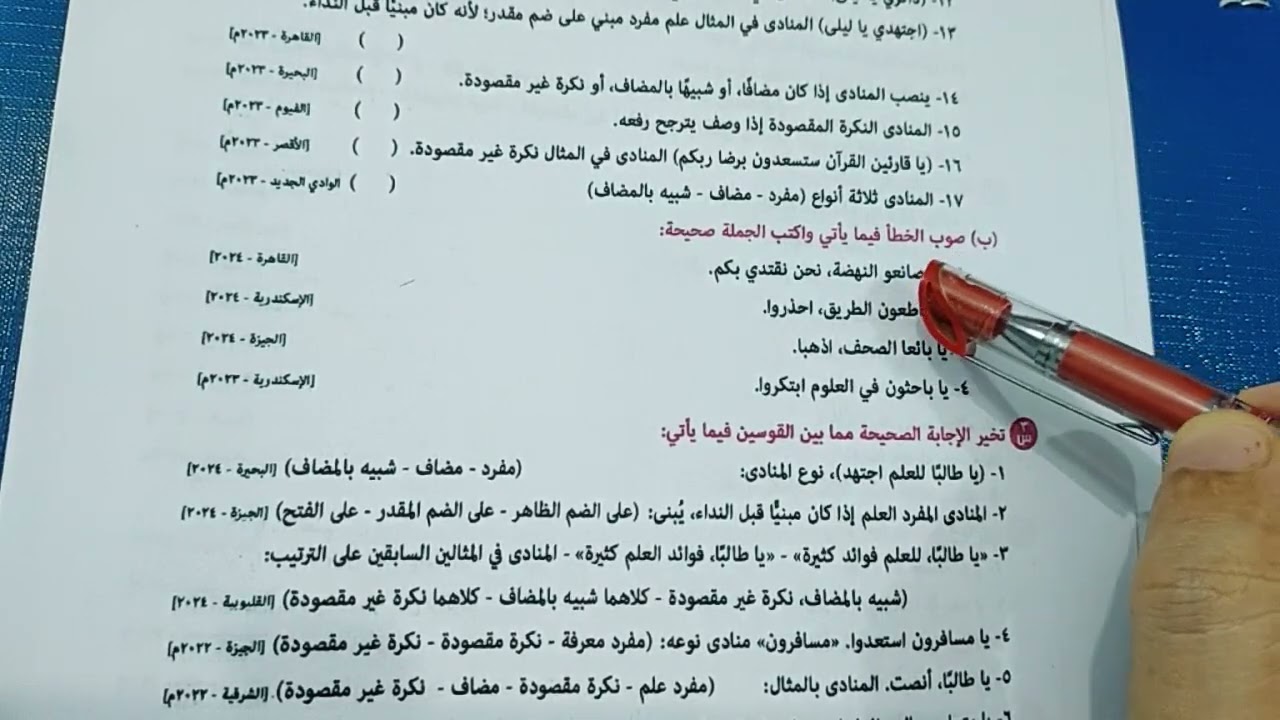 ١٣- (اجتهدي يا ليلى) المنادى في المثال علم مفرد مبني على ضم مقدر؛ لأنه كان مبنيًّا قبل النداء.
( ) [القاهرة - ٢٠٢٣م]
١٤- ينصب المنادى إذا كان مضافًا، أو شبيهًا بالمضاف، أو نكرة غير مقصودة. ( ) [البحيرة - ٢٠٢٣م]
١٥- المنادى النكرة المقصودة إذا وصف يترجح رفعه. ( ) [الفيوم - ٢٠٢٣م]
١٦- (يا قارئين القرآن ستسعدون برضا ربكم) المنادى في المثال نكرة غير مقصودة. ( ) [الأقصر - ٢٠٢٣م]
١٧- المنادى ثلاثة أنواع (مفرد - مضاف - شبيه بالمضاف) ( ) [الوادي الجديد - ٢٠٢٣م]
(ب) صوب الخطأ فيما يأتي واكتب الجملة صحيحة:
صانعو النهضة، نحن نقتدي بكم. [القاهرة - ٢٠٢٤]
الطريق، احذروا. [الإسكندرية - ٢٠٢٤]
يا بائعا الصحف، اذهبا. [الجيزة - ٢٠٢٤]
٤- يا باحثون في العلوم ابتكروا. [الإسكندرية - ٢٠٢٣م]
س٣ تخير الإجابة الصحيحة مما بين القوسين فيما يأتي:
١- (يا طالبًا للعلم اجتهد)، نوع المنادى: (مفرد - مضاف - شبيه بالمضاف) [البحيرة - ٢٠٢٤]
٢- المنادى المفرد العلم إذا كان مبنيًّا قبل النداء، يُبنى: (على الضم الظاهر - على الضم المقدر - على الفتح) [الجيزة - ٢٠٢٤]
٣- «يا طالبًا، للعلم فوائد كثيرة» - «يا طالبًا، فوائد العلم كثيرة» - المنادى في المثالين السابقين على الترتيب:
(شبيه بالمضاف، نكرة غير مقصودة - كلاهما شبيه بالمضاف - كلاهما نكرة غير مقصودة) [القليوبية - ٢٠٢٤]
٤- يا مسافرون استعدوا. «مسافرون» منادى نوعه: (مفرد معرفة - نكرة مقصودة - نكرة غير مقصودة) [الجيزة - ٢٠٢٢م]
٥- يا طالبًا، أنصت. المنادى بالمثال: (مفرد علم - نكرة مقصودة - مضاف - نكرة غير مقصودة). [الشرقية - ٢٠٢٢م]